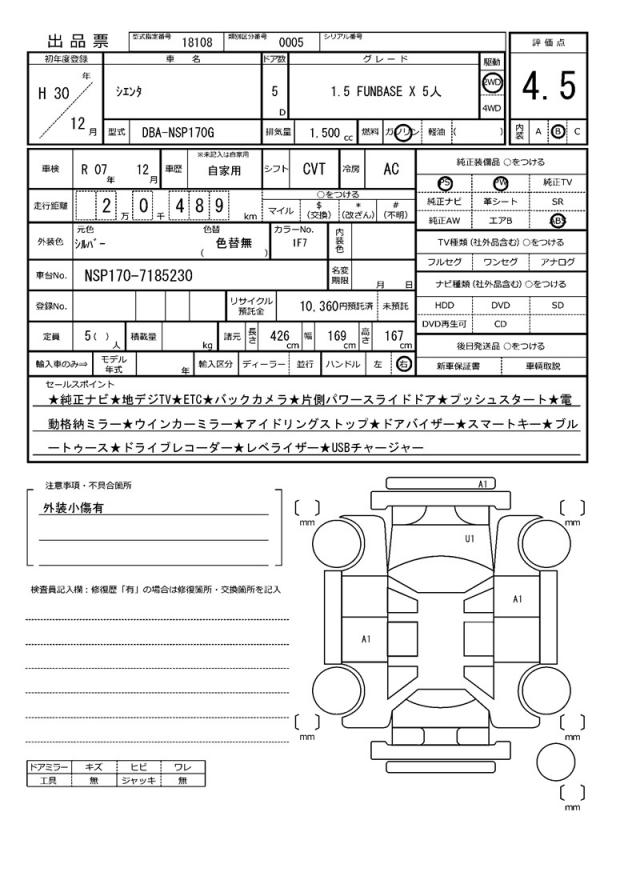 出品票 型式指定番号 18108 類別区分番号 0005 シリアル番号
評価点
4.5
初年度登録 車名 ドア数 グレード 駆動
H 30 年 12 月
シエンタ
5 D
1.5 FUNBASE X 5人
2WD
4WD
型式 DBA-NSP170G 排気量 1,500 cc 燃料 ガソリン 軽油 ( )
内装 A B C
車検 R 07 年 12 月 車歴 ※未記入は自家用 自家用 シフト CVT 冷房 AC
走行距離 2 万 0 千 4 8 9 km
○をつける
マイル $ (交換) * (改ざん) # (不明)
外装色 元色 シルバー 色替 ( 色替無 ) カラーNo. 1F7 内装色
車台No. NSP170-7185230 名変期限 月 日
登録No. リサイクル預託金 10,360円預託済 未預託
定員 5( ) 人 積載量 kg 諸元 長さ 426 cm 幅 169 cm 高さ 167 cm
輸入車のみ⇒ モデル年式 年 輸入区分 ディーラー 並行 ハンドル 左 右
純正装備品 ○をつける
PS PW 純正TV
純正ナビ 革シート SR
純正AW エアB ABS
TV種類 (社外品含む) ○をつける
フルセグ ワンセグ アナログ
ナビ種類 (社外品含む) ○をつける
HDD DVD SD
DVD再生可 CD
後日発送品 ○をつける
新車保証書 車輌取説
セールスポイント
★純正ナビ★地デジTV★ETC★バックカメラ★片側パワースライドドア★プッシュスタート★電
動格納ミラー★ウインカーミラー★アイドリングストップ★ドアバイザー★スマートキー★ブル
ートゥース★ドライブレコーダー★レベライザー★USBチャージャー
注意事項・不具合箇所
外装小傷有
検査員記入欄：修復歴「有」の場合は修復箇所・交換箇所を記入
ドアミラー キズ ヒビ ワレ
工具 無 ジャッキ 無
A1
〔 〕 mm
〔 〕 mm
U1
A1
A1
〔 〕 mm
〔 〕 mm
〔 〕 mm